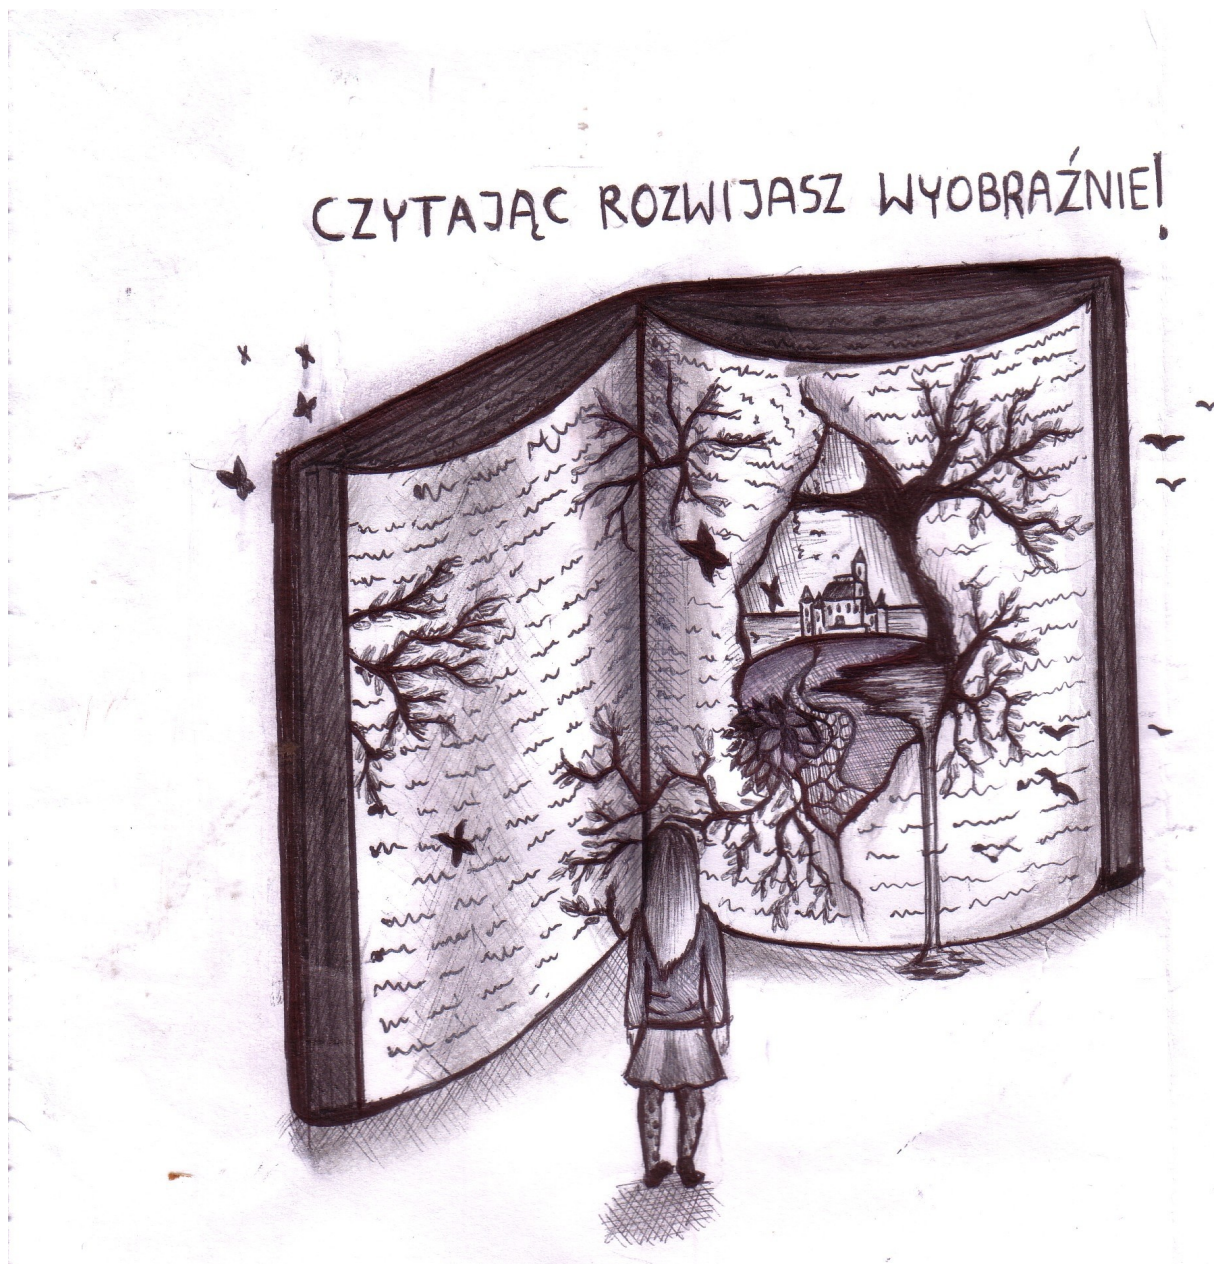 CZYTAJĄC ROZWIJASZ WYOBRAŹNIE!